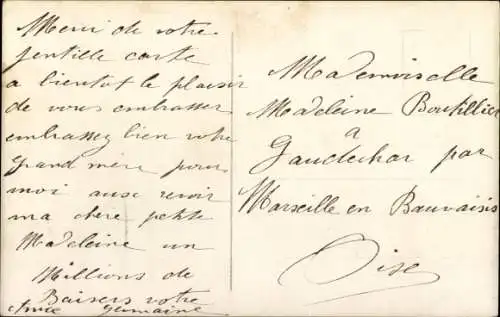 Merci de votre
gentille carte
a bientot le plaisir
de vous embrasser
embrassez bien votre
Grand mère pour
moi ausi revoir
ma chere petite
Madeleine un
Millions de
Baisers votre
amie Germaine
Mademoiselle
Madeleine Boutillier
a
Gaudechar par
Marseille en Bauvaisis
Oise